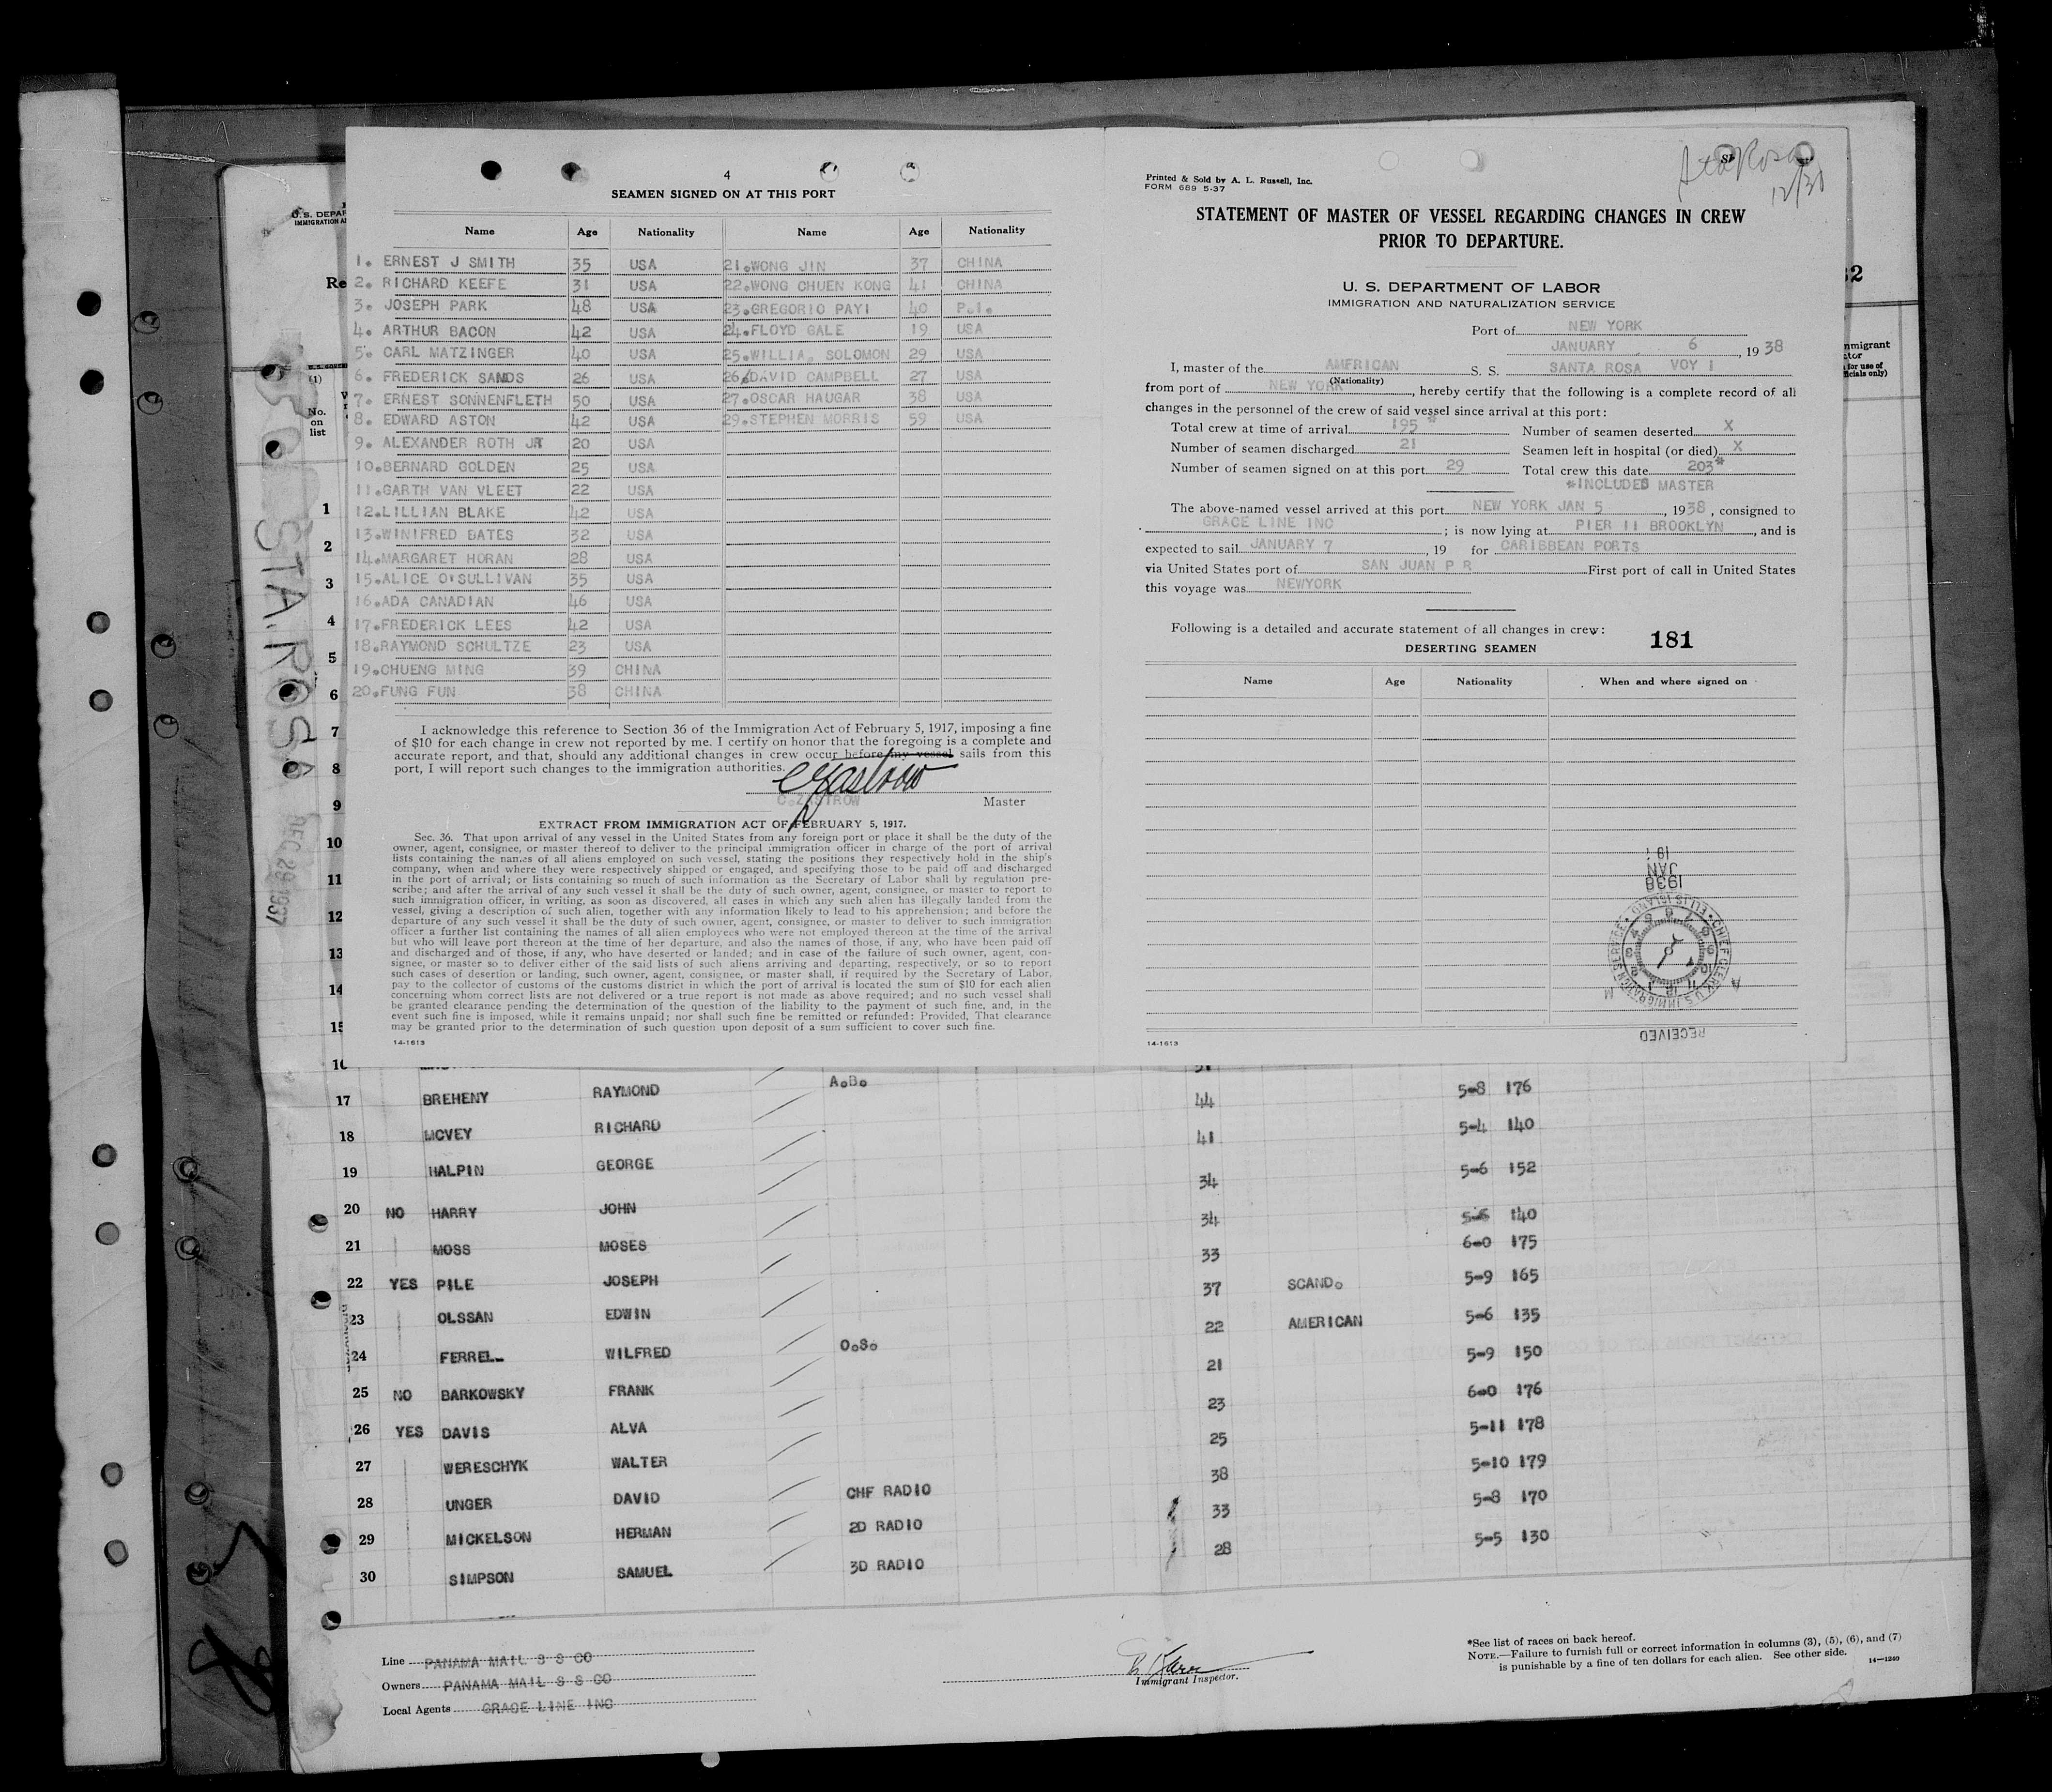 4
SEAMEN SIGNED ON AT THIS PORT
Name Age Nationality Name Age Nationality
1. ERNEST J SMITH 35 USA 21.WONG JIN 37 CHINA
2. RICHARD KEEFE 31 USA 22.WONG CHUEN KONG 41 CHINA
3. JOSEPH PARK 48 USA 23.GREGORIO PAYI 40 P.I.
4. ARTHUR BACON 42 USA 24.FLOYD GALE 19 USA
5. CARL MATZINGER 40 USA 25.WILLIA. SOLOMON 29 USA
6. FREDERICK SANDS 26 USA 26.DAVID CAMPBELL 27 USA
7. ERNEST SONNENFLETH 50 USA 27.OSCAR HAUGAR 38 USA
8. EDWARD ASTON 42 USA 29.STEPHEN MORRIS 59 USA
9. ALEXANDER ROTH JR 20 USA
10.BERNARD GOLDEN 25 USA
11.GARTH VAN VLEET 22 USA
12.LILLIAN BLAKE 42 USA
13.WINIFRED BATES 32 USA
14.MARGARET HORAN 28 USA
15.ALICE O'SULLIVAN 35 USA
16.ADA CANADIAN 46 USA
17.FREDERICK LEES 42 USA
18.RAYMOND SCHULTZE 23 USA
19.CHUENG MING 39 CHINA
20.FUNG FUN 38 CHINA
I acknowledge this reference to Section 36 of the Immigration Act of February 5, 1917, imposing a fine
of $10 for each change in crew not reported by me. I certify on honor that the foregoing is a complete and
accurate report, and that, should any additional changes in crew occur before my vessel sails from this
port, I will report such changes to the immigration authorities.
C Zastrow
C.ZASTROW Master
EXTRACT FROM IMMIGRATION ACT OF FEBRUARY 5, 1917.
Sec. 36. That upon arrival of any vessel in the United States from any foreign port or place it shall be the duty of the
owner, agent, consignee, or master thereof to deliver to the principal immigration officer in charge of the port of arrival
lists containing the names of all aliens employed on such vessel, stating the positions they respectively hold in the ship's
company, when and where they were respectively shipped or engaged, and specifying those to be paid off and discharged
in the port of arrival; or lists containing so much of such information as the Secretary of Labor shall by regulation pre-
scribe; and after the arrival of any such vessel it shall be the duty of such owner, agent, consignee, or master to report to
such immigration officer, in writing, as soon as discovered, all cases in which any such alien has illegally landed from the
vessel, giving a description of such alien, together with any information likely to lead to his apprehension; and before the
departure of any such vessel it shall be the duty of such owner, agent, consignee, or master to deliver to such immigration
officer a further list containing the names of all alien employees who were not employed thereon at the time of the arrival
but who will leave port thereon at the time of her departure, and also the names of those, if any, who have been paid off
and discharged and of those, if any, who have deserted or landed; and in case of the failure of such owner, agent, con-
signee, or master so to deliver either of the said lists of such aliens arriving and departing, respectively, or so to report
such cases of desertion or landing, such owner, agent, consignee, or master shall, if required by the Secretary of Labor,
pay to the collector of customs of the customs district in which the port of arrival is located the sum of $10 for each alien
concerning whom correct lists are not delivered or a true report is not made as above required; and no such vessel shall
be granted clearance pending the determination of the question of the liability to the payment of such fine, and, in the
event such fine is imposed, while it remains unpaid; nor shall such fine be remitted or refunded: Provided, That clearance
may be granted prior to the determination of such question upon deposit of a sum sufficient to cover such fine.
14-1613
Printed & Sold by A. L. Russell, Inc.
FORM 689 5-37
Sta Rosa
12/30
STATEMENT OF MASTER OF VESSEL REGARDING CHANGES IN CREW
PRIOR TO DEPARTURE.
U. S. DEPARTMENT OF LABOR
IMMIGRATION AND NATURALIZATION SERVICE
Port of NEW YORK
JANUARY 6, 1938
I, master of the AMERICAN S. S. SANTA ROSA VOY 1
(Nationality)
from port of NEW YORK, hereby certify that the following is a complete record of all
changes in the personnel of the crew of said vessel since arrival at this port:
Total crew at time of arrival 195 * Number of seamen deserted X
Number of seamen discharged 21 Seamen left in hospital (or died) X
Number of seamen signed on at this port 29 Total crew this date 203*
*INCLUDES MASTER
The above-named vessel arrived at this port NEW YORK JAN 5, 1938, consigned to
GRACE LINE INC; is now lying at PIER 11 BROOKLYN, and is
expected to sail JANUARY 7, 19 for CARIBBEAN PORTS
via United States port of SAN JUAN P R First port of call in United States
this voyage was NEWYORK
Following is a detailed and accurate statement of all changes in crew: 181
DESERTING SEAMEN
Name Age Nationality When and where signed on
JAN
1938
CHIEF CLERK, U.S. IMMIGRATION SERVICE ELLIS ISLAND
RECEIVED
14-1613
U.S. DEPAR
IMMIGRATION AN
Re
32
(1)
No.
on
list
mmigrant
tor
for use of
ficials only)
STA. ROSA
DEC 29 1937
1
2
3
4
5
6
7
8
9
10
11
12
13
14
15
16
17 BREHENY RAYMOND A.B. 44 5-8 176
18 MCVEY RICHARD 41 5-4 140
19 HALPIN GEORGE 34 5-6 152
20 NO HARRY JOHN 34 5-6 140
21 MOSS MOSES 33 6-0 175
22 YES PILE JOSEPH 37 SCAND. 5-9 165
23 OLSSAN EDWIN 22 AMERICAN 5-6 135
24 FERREL WILFRED O.S. 21 5-9 150
25 NO BARKOWSKY FRANK 23 6-0 176
26 YES DAVIS ALVA 25 5-11 178
27 WERESCHYK WALTER 38 5-10 179
28 UNGER DAVID CHF RADIO 33 5-8 170
29 MICKELSON HERMAN 2D RADIO 28 5-5 130
30 SIMPSON SAMUEL 3D RADIO
Line PANAMA MAIL S S CO
Owners PANAMA MAIL S S CO
Local Agents GRACE LINE INC
Immigrant Inspector.
*See list of races on back hereof.
NOTE.—Failure to furnish full or correct information in columns (3), (5), (6), and (7)
is punishable by a fine of ten dollars for each alien. See other side.
14—1240